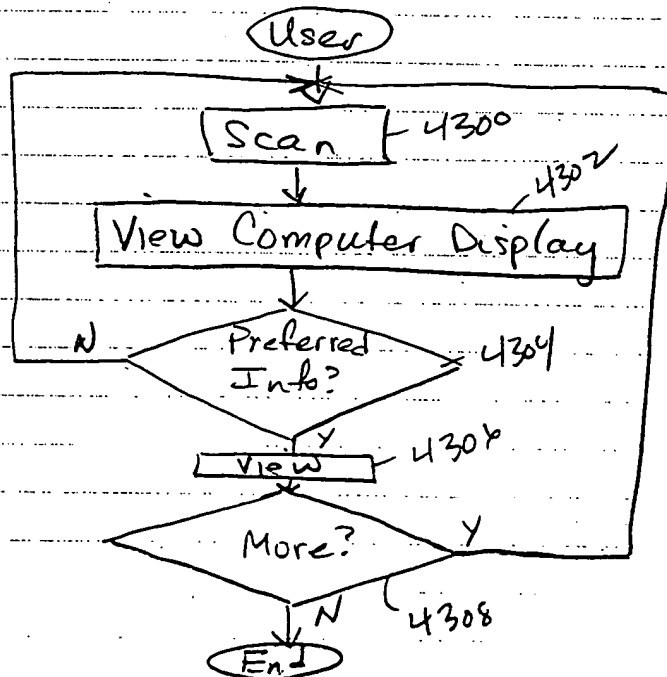 User
Scan
4300
4302
View Computer Display
N
Preferred
Info?
4304
Y
View
4306
More?
Y
N
4308
End